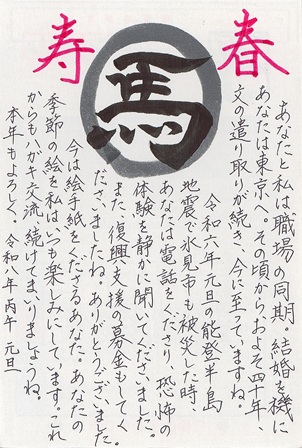 春
寿
馬
あなたと私は職場の同期。結婚を機に
あなたは東京へ。その頃からおよそ四十年、
文の遣り取りが続き、今に至っていますね。
令和六年元旦の能登半島
地震で氷見市も被災した時、
あなたは電話をくださり、恐怖の
体験を静かに聞いてくださいました。
また、復興支援の募金もしてく
ださいましたね。ありがとうございました。
今は絵手紙をくださるあなた。あなたの
季節の絵を私はいつも楽しみにしています。これ
からもハガキ交流、続けてまいりましょうね。
本年もよろしく。 令和八年丙午 元旦